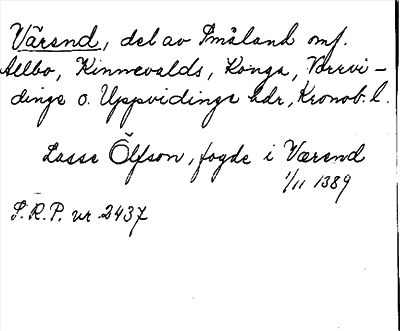 Värend, del av Småland omf.
Allbo, Kinnevalds, Konga, Norrvi-
dinge o. Uppvidinge hdr, Kronob. l.
Lasse Ölfson, fogde i Værend
1/11 1389
S.R.P. nr 2437